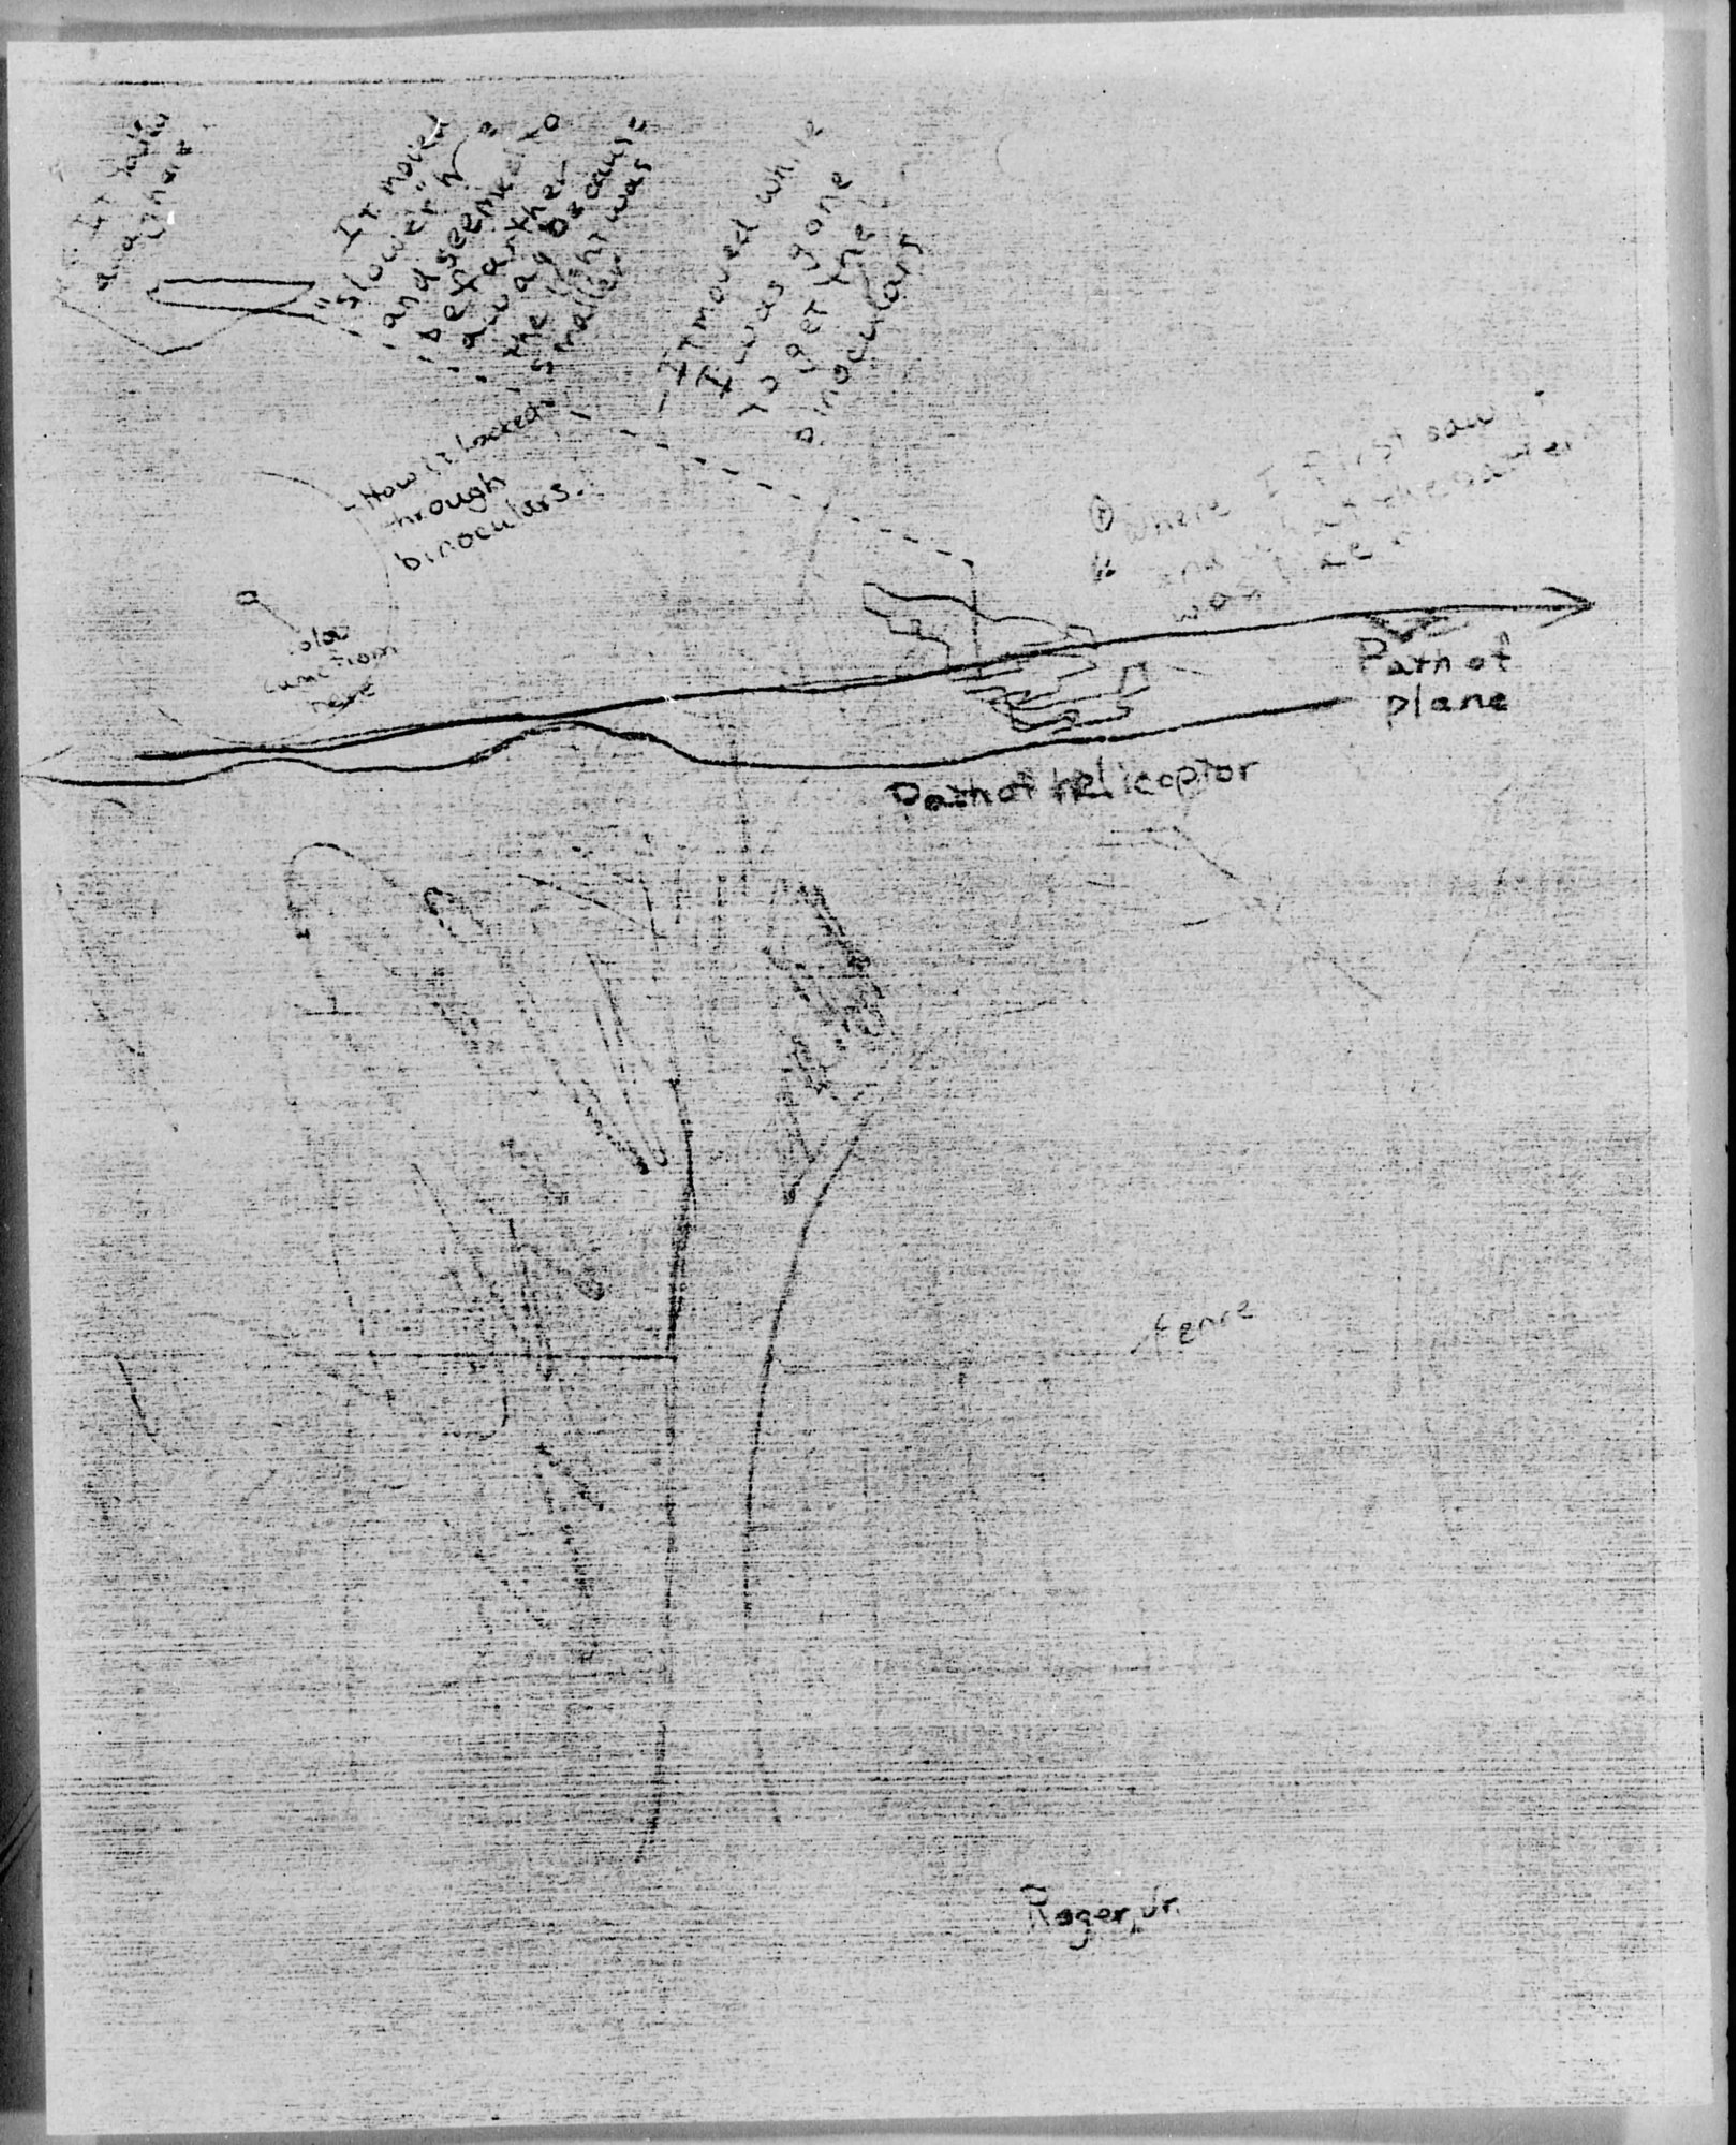 It moved
"slower"
and seemed to
be farther
away because
the light was
smaller
It moved while
I was gone
to get the
binoculars
How it looked
through
binoculars.
Where I first saw
and
was
glow
came from
here
Path of
plane
Path of helicoptor
fence
Roger, Jr.